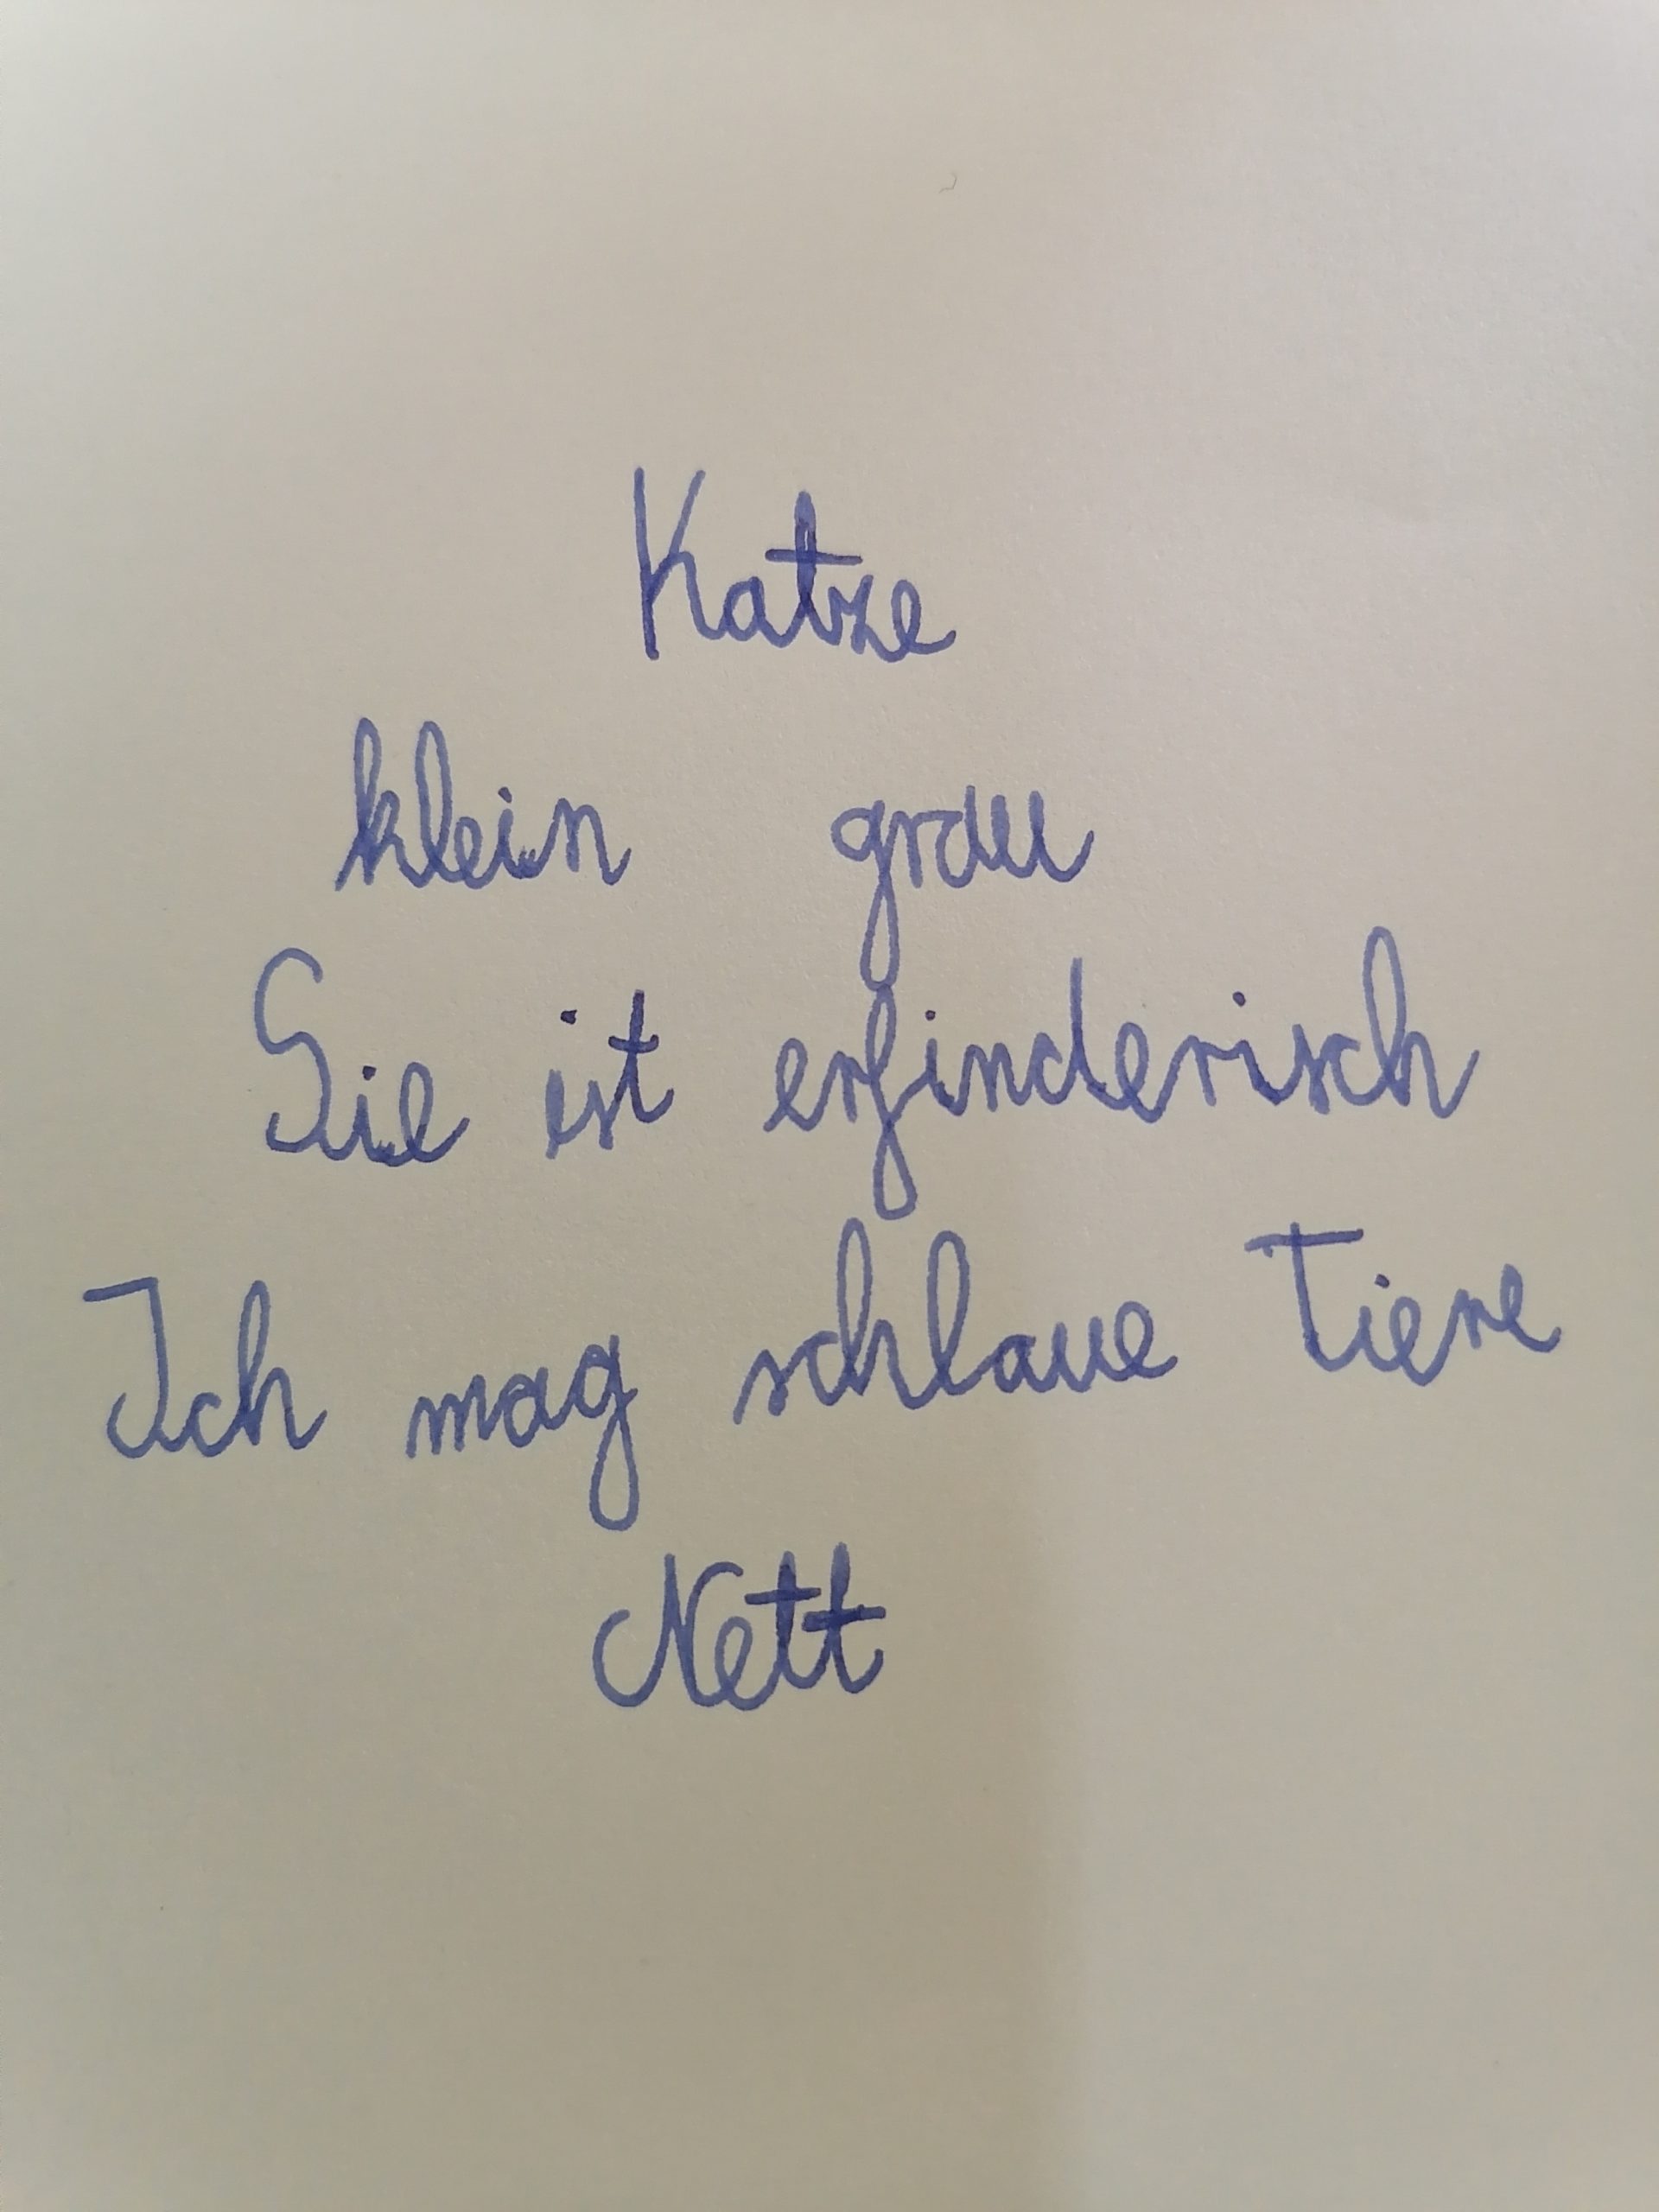 Katze
klein grau
Sie ist erfinderisch
Ich mag schlaue Tiere
Nett